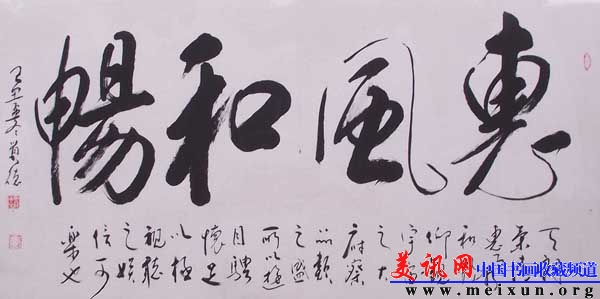 惠風和暢
天朗
氣清
惠風
和暢
仰觀
宇宙
之大
俯察
品類
之盛
所以遊
目騁
懷足
以極
視聽
之娛
信可
樂也
美讯网 中国书画收藏频道
www.meixun.org